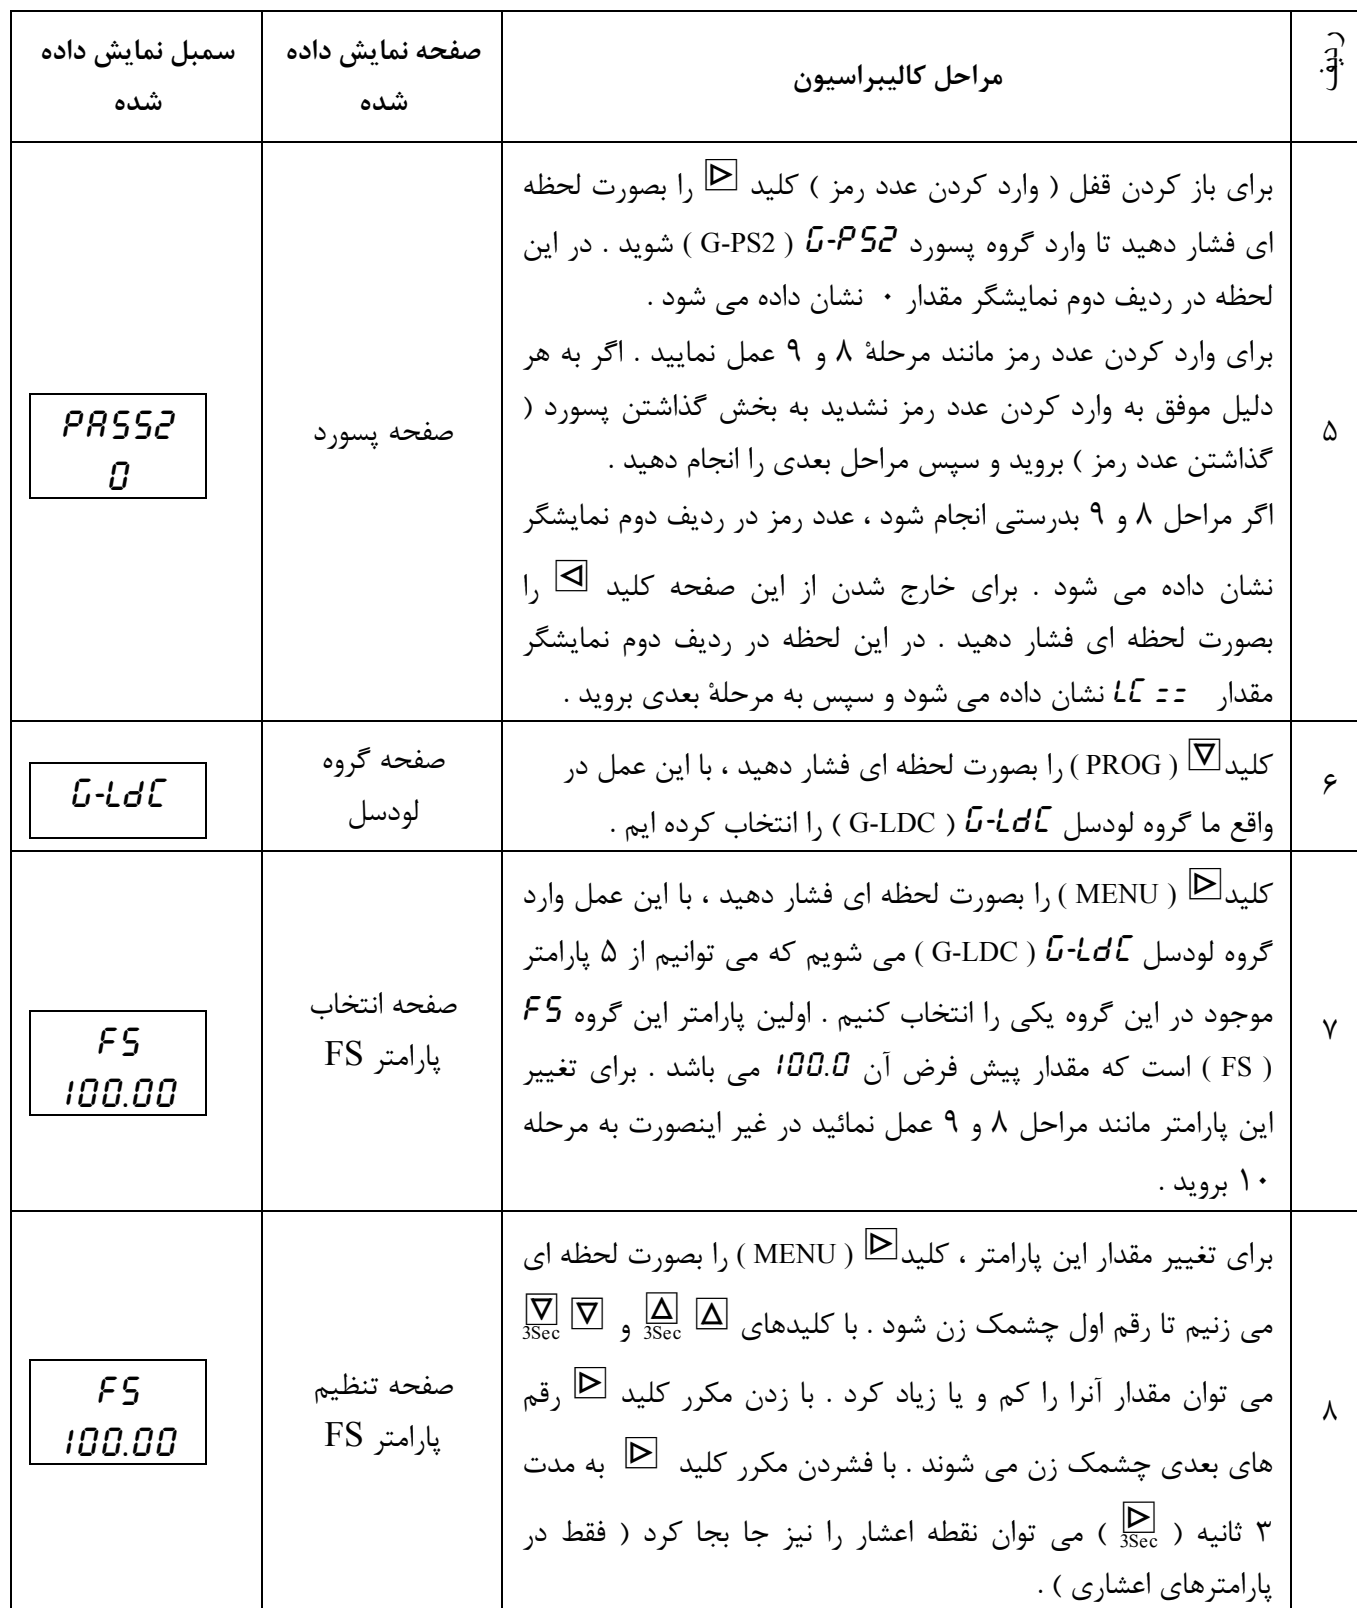 ردیف
مراحل کالیبراسیون
صفحه نمایش داده
شده
سمبل نمایش داده
شده
۵
برای باز کردن قفل ( وارد کردن عدد رمز ) کلید ▷ را بصورت لحظه
ای فشار دهید تا وارد گروه پسورد G-PS2 ( G-PS2 ) شوید . در این
لحظه در ردیف دوم نمایشگر مقدار ۰ نشان داده می شود .
برای وارد کردن عدد رمز مانند مرحلهٔ ۸ و ۹ عمل نمایید . اگر به هر
دلیل موفق به وارد کردن عدد رمز نشدید به بخش گذاشتن پسورد (
گذاشتن عدد رمز ) بروید و سپس مراحل بعدی را انجام دهید .
اگر مراحل ۸ و ۹ بدرستی انجام شود ، عدد رمز در ردیف دوم نمایشگر
نشان داده می شود . برای خارج شدن از این صفحه کلید ◁ را
بصورت لحظه ای فشار دهید . در این لحظه در ردیف دوم نمایشگر
مقدار LC == نشان داده می شود و سپس به مرحلهٔ بعدی بروید .
صفحه پسورد
PASS2
0
۶
کلید ▽ ( PROG ) را بصورت لحظه ای فشار دهید ، با این عمل در
واقع ما گروه لودسل G-LdC ( G-LDC ) را انتخاب کرده ایم .
صفحه گروه
لودسل
G-LdC
۷
کلید ▷ ( MENU ) را بصورت لحظه ای فشار دهید ، با این عمل وارد
گروه لودسل G-LdC ( G-LDC ) می شویم که می توانیم از ۵ پارامتر
موجود در این گروه یکی را انتخاب کنیم . اولین پارامتر این گروه FS
( FS ) است که مقدار پیش فرض آن 100.0 می باشد . برای تغییر
این پارامتر مانند مراحل ۸ و ۹ عمل نمائید در غیر اینصورت به مرحله
۱۰ بروید .
صفحه انتخاب
پارامتر FS
FS
100.00
۸
برای تغییر مقدار این پارامتر ، کلید ▷ ( MENU ) را بصورت لحظه ای
می زنیم تا رقم اول چشمک زن شود . با کلیدهای △ △ 3Sec و ▽ ▽ 3Sec
می توان مقدار آنرا را کم و یا زیاد کرد . با زدن مکرر کلید ▷ رقم
های بعدی چشمک زن می شوند . با فشردن مکرر کلید ▷ به مدت
۳ ثانیه ( ▷ 3Sec ) می توان نقطه اعشار را نیز جا بجا کرد ( فقط در
پارامترهای اعشاری ) .
صفحه تنظیم
پارامتر FS
FS
100.00